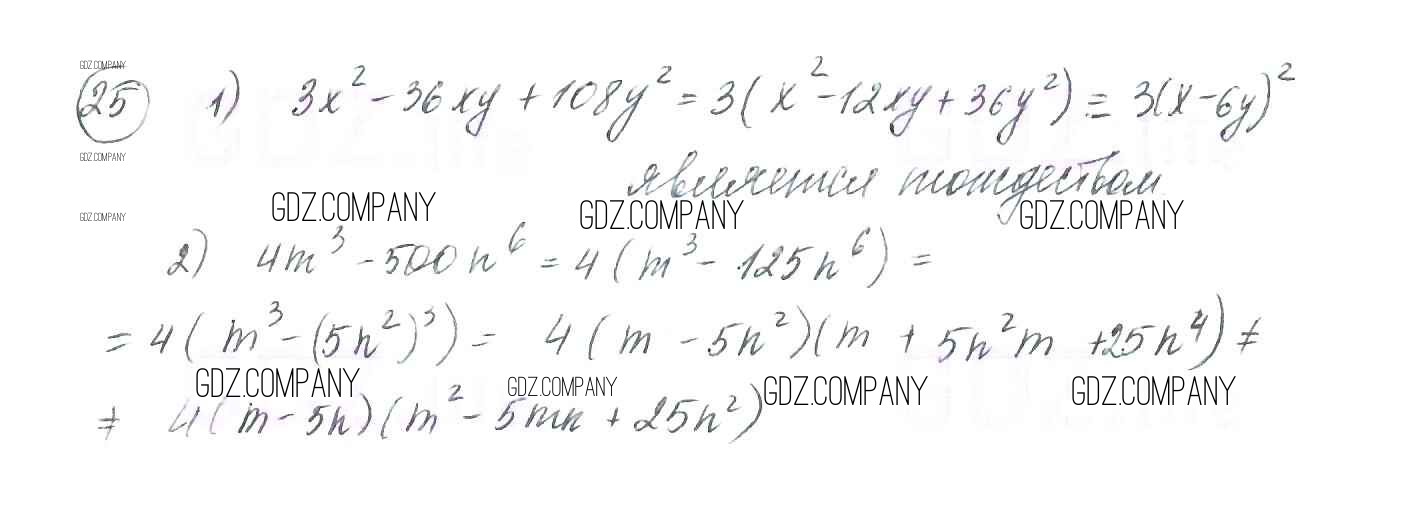 GDZ.COMPANY
25 1) 3x² - 36xy + 108y² = 3(x² - 12xy + 36y²) = 3(x - 6y)²
GDZ.COMPANY
является тождеством
GDZ.COMPANY GDZ.COMPANY GDZ.COMPANY GDZ.COMPANY
2) 4m³ - 500n⁶ = 4(m³ - 125n⁶) =
= 4(m³ - (5n²)³) = 4(m - 5n²)(m + 5n²m + 25n⁴) ≠
GDZ.COMPANY GDZ.COMPANY GDZ.COMPANY GDZ.COMPANY
≠ 4(m - 5n)(m² - 5mn + 25n²)